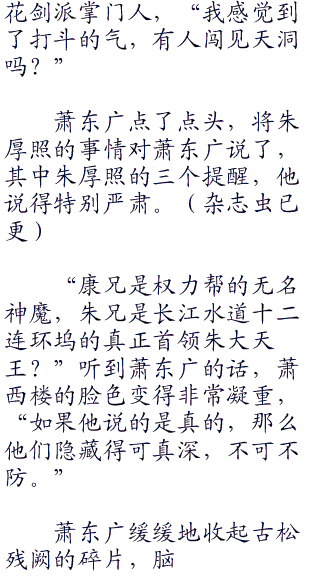 花剑派掌门人，“我感觉到
了打斗的气，有人闯见天洞
吗？”
萧东广点了点头，将朱
厚照的事情对萧东广说了，
其中朱厚照的三个提醒，他
说得特别严肃。（杂志虫已
更）
“康兄是权力帮的无名
神魔，朱兄是长江水道十二
连环坞的真正首领朱大天
王？”听到萧东广的话，萧
西楼的脸色变得非常凝重，
“如果他说的是真的，那么
他们隐藏得可真深，不可不
防。”
萧东广缓缓地收起古松
残阙的碎片，脑